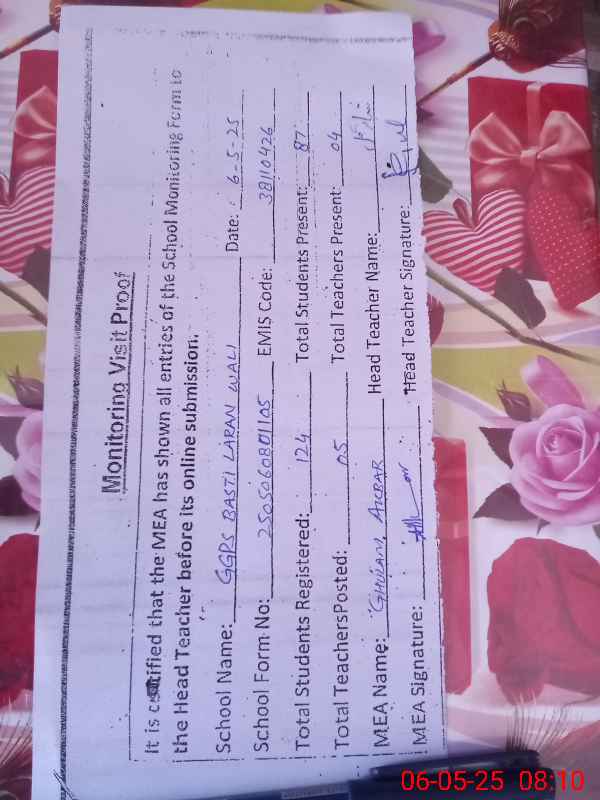 Monitoring Visit Proof
It is certified that the MEA has shown all entries of the School Monitoring Form to
the Head Teacher before its online submission.
School Name: GGPS BASTI LARAN WALI Date: 6-5-25
School Form No: 2505060801105 EMIS Code: 38110426
Total Students Registered: 124 Total Students Present: 87
Total TeachersPosted: 05 Total Teachers Present: 04
MEA Name: GHULAM AKBAR Head Teacher Name:
MEA Signature: Head Teacher Signature:
06-05-25 08:10